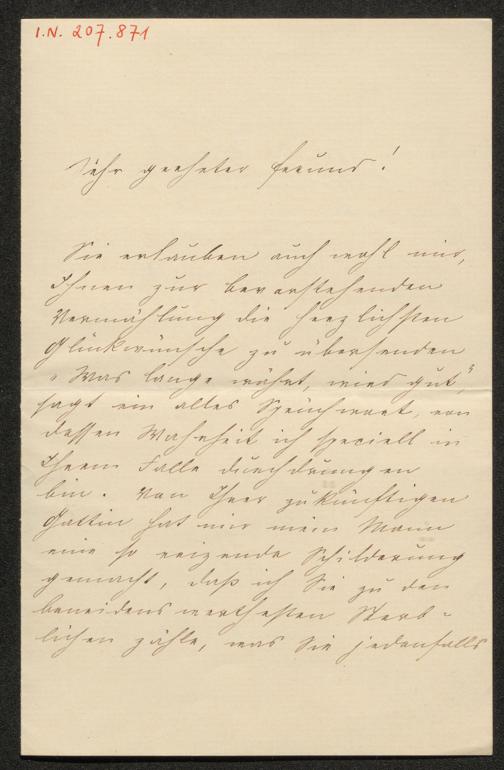 I.N. 207.871
Sehr geehrter Freund!
Sie erlauben auch wohl mir,
Ihnen zur bevorstehenden
Vermählung die herzlichsten
Glückwünsche zu übersenden
„Was lange währt, wird gut,"
sagt ein altes Sprichwort, von
dessen Wahrheit ich speciell in
Ihrem Falle durchdrungen
bin. Von Ihrer zukünftigen
Gattin hat mir mein Mann
eine so reizende Schilderung
gemacht, daß ich Sie zu den
beneidenswerthesten Sterb-
lichen zähle, was Sie jedenfalls